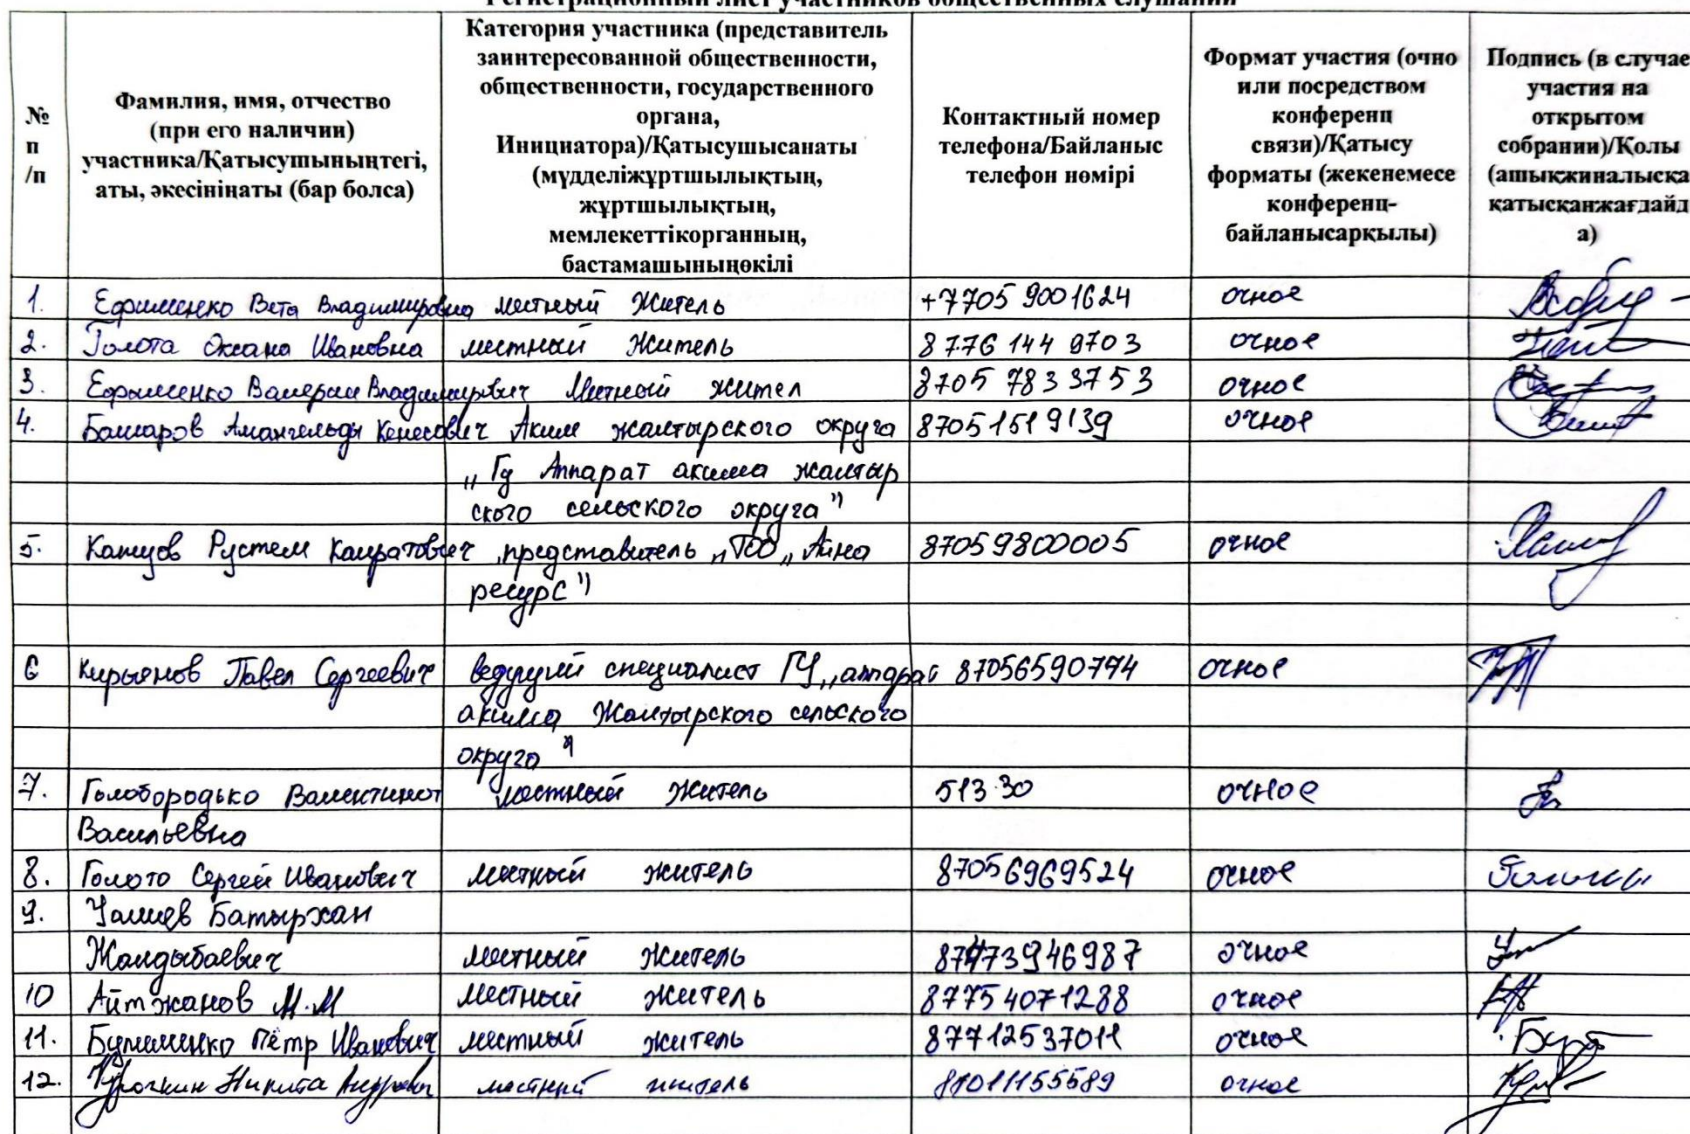 Регистрационный лист участников общественных слушаний
№
п
/п
Фамилия, имя, отчество
(при его наличии)
участника/Қатысушыныңтегі,
аты, әкесініңаты (бар болса)
Категория участника (представитель
заинтересованной общественности,
общественности, государственного
органа,
Инициатора)/Қатысушысанаты
(мүдделіжұртшылықтың,
жұртшылықтың,
мемлекеттікорганның,
бастамашыныңөкілі
Контактный номер
телефона/Байланыс
телефон нөмірі
Формат участия (очно
или посредством
конференц
связи)/Қатысу
форматы (жекенемесе
конференц-
байланысарқылы)
Подпись (в случае
участия на
открытом
собрании)/Қолы
(ашықжиналысқа
қатысқанжағдайд
а)
1. Ефименко Вета Владимировна местный житель +7705 9001624 очное
2. Голота Оксана Ивановна местный житель 8776 144 9703 очное
3. Ефименко Валерий Владимирович Местный жител 8705 783 3753 очное
4. Башаров Амангельды Кенесович Аким жалтырского округа 87051519139 очное
"Гу Аппарат акима жалтыр
ского сельского округа")
5. Рустем Каиратович представитель "ТОО "Айна 87059800005 очное
ресурс")
6 Кирьянов Павел Сергеевич ведущий специалист ГУ "аппарат 87056590794 очное
акима Жалтырского сельского
округа"
7. Голобородько Валентинот местный житель 513-30 очное
Васильевна
8. Голото Сергей Иванович местный житель 87056969524 очное
9. Уалиев Батырхан
Жандыбаевич местный житель 87473946987 очное
10 Айтжанов М.М местный житель 87754071288 очное
11. Пётр Иванович местный житель 87712537011 очное
12. Никита Андреевич местный житель 87011155589 очное